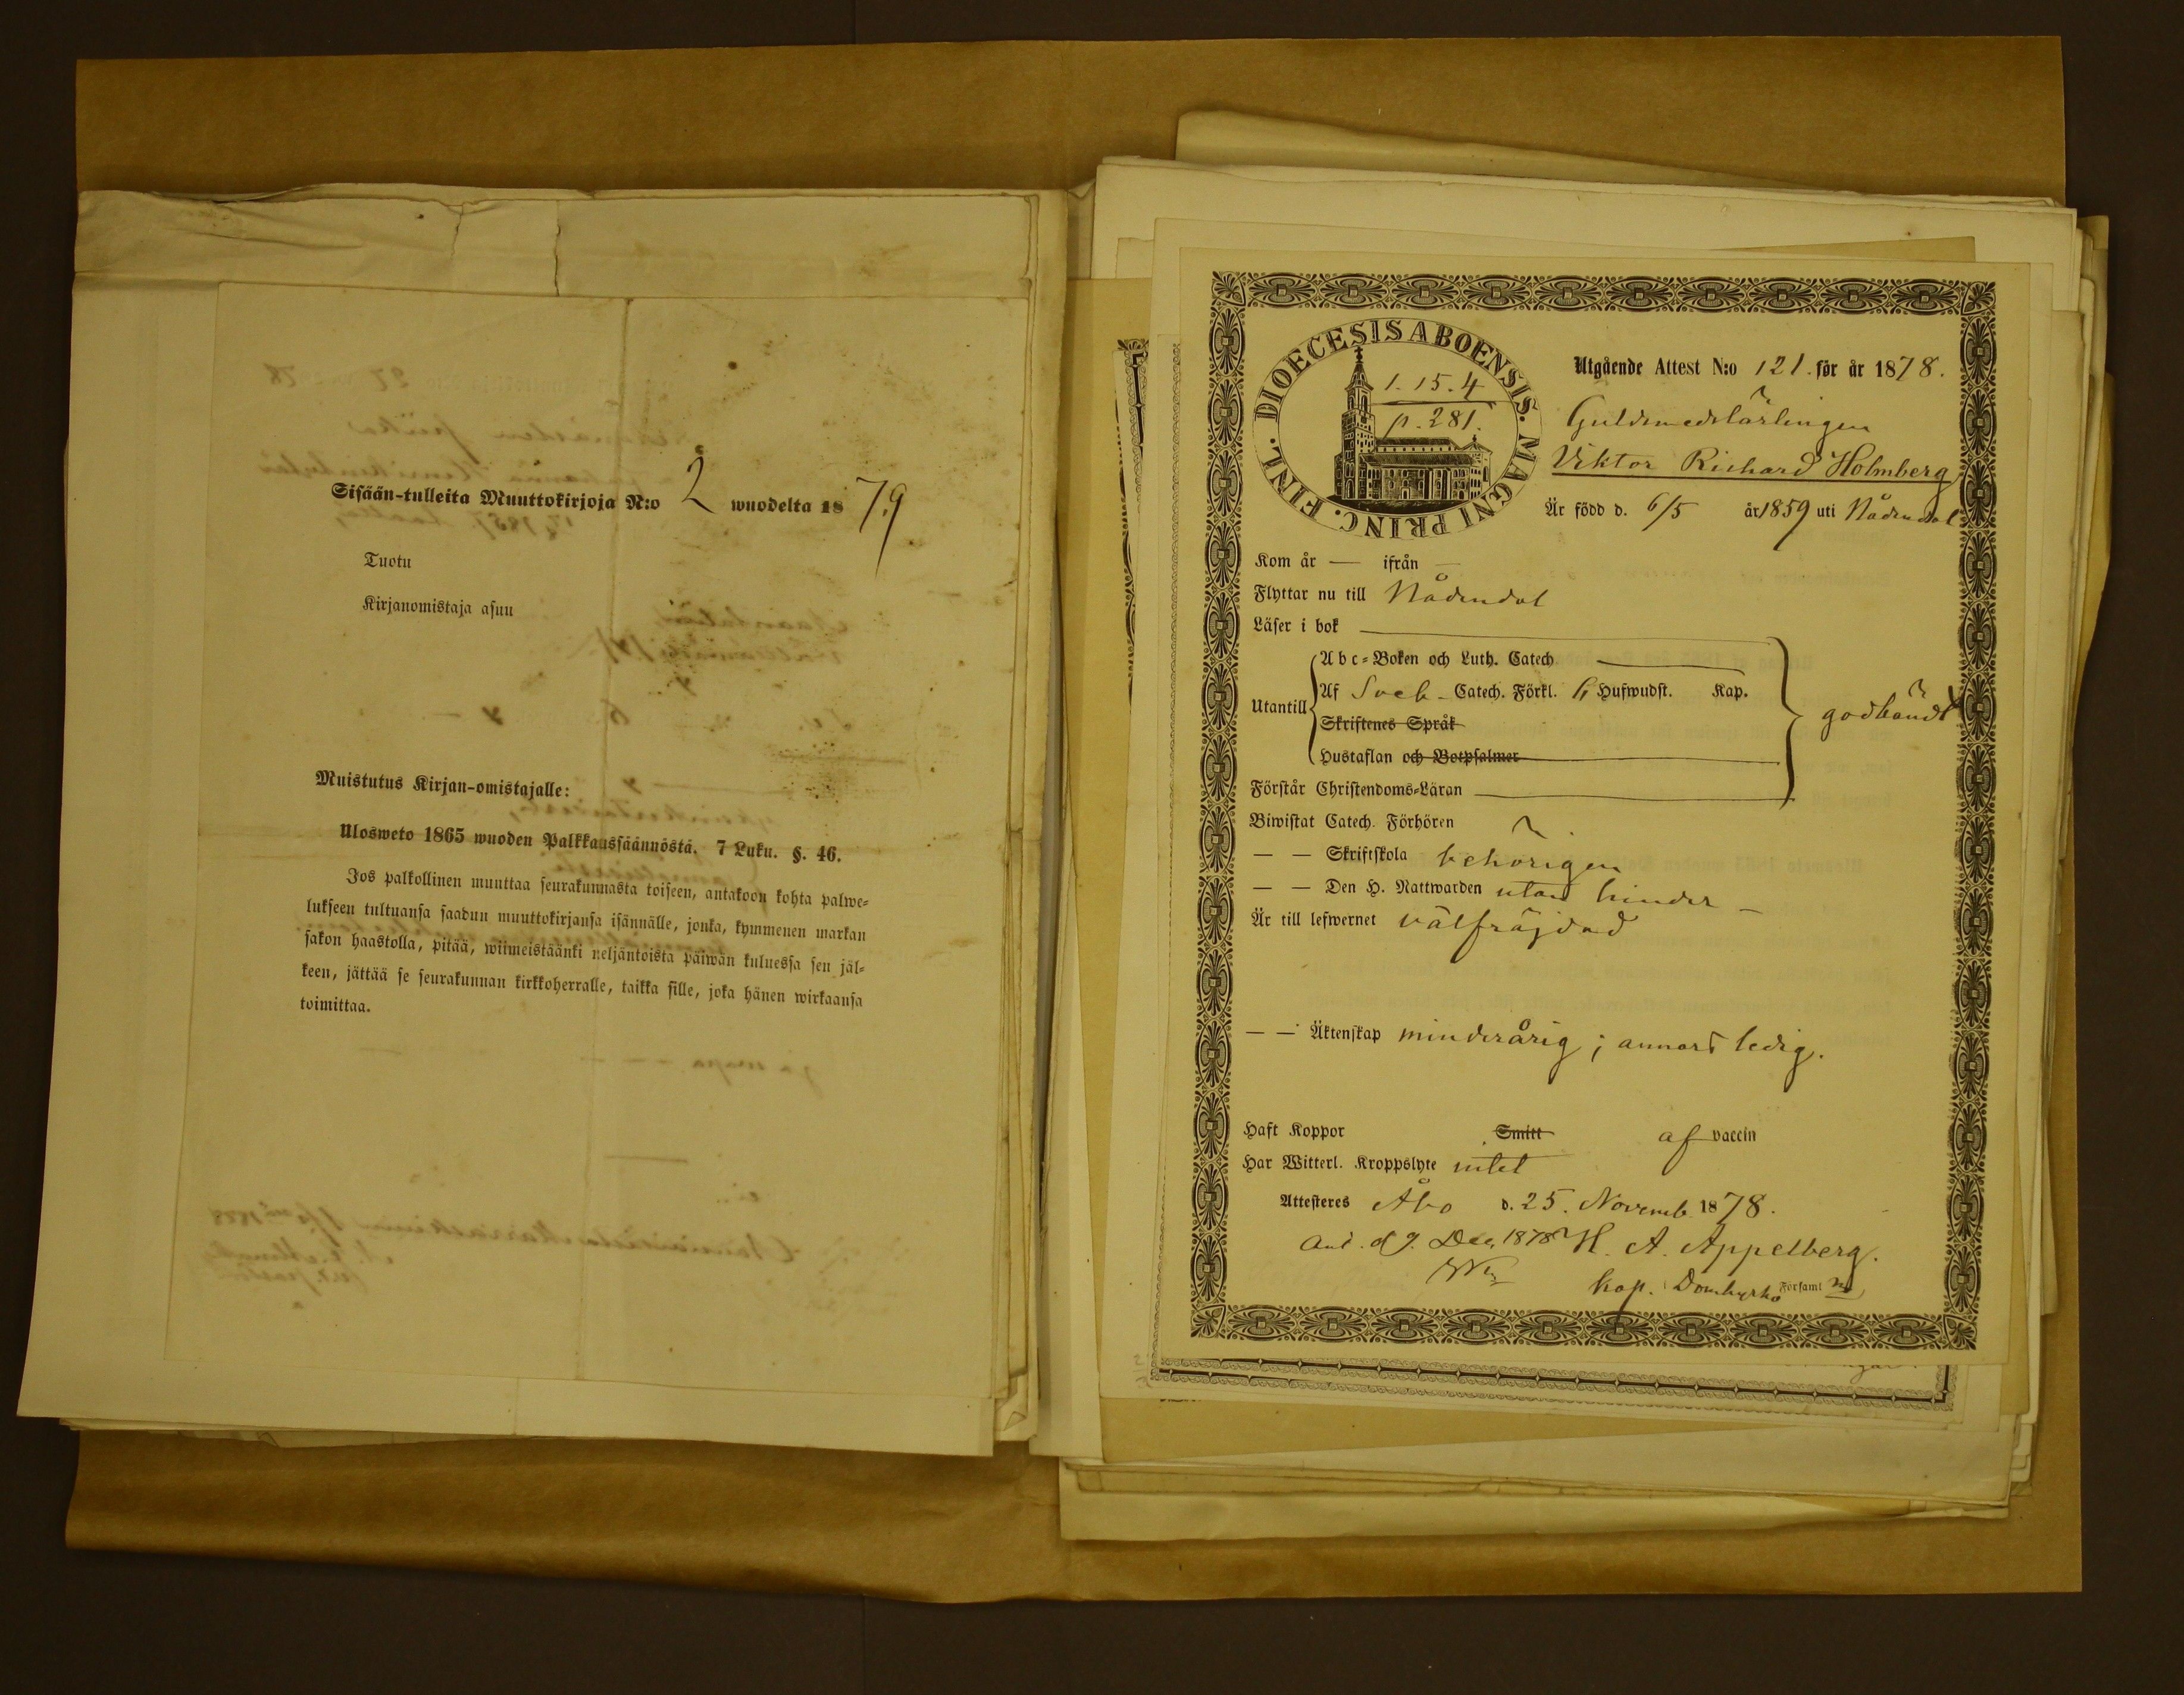 Sisään-tulleita Muuttokirjoja N:o 2 wuodelta 1879
Tuotu
Kirjanomistaja asuu
Muistutus Kirjan-omistajalle:
Ulosweto 1865 wuoden Palkkaussäännöstä. 7 Luku. §. 46.
Jos palkollinen muuttaa seurakunnasta toiseen, antakoon kohta palwe-
lukseen tultuansa saadun muuttokirjansa isännälle, jonka, kymmenen markan
sakon haastolla, pitää, wiimeistäänki neljäntoista päiwän kuluessa sen jäl-
keen, jättää se seurakunnan kirkkoherralle, taikka sille, joka hänen wirkaansa
toimittaa.
DIOECESIS ABOENSIS. MAGNI PRINC. FINL.
1. 15. 4
p. 281.
Utgående Attest N:o 121. för år 1878.
Guldsmedslärlingen
Viktor Richard Holmberg
Är född d. 6/5 år 1859 uti Nådendal
Kom år — ifrån —
Flyttar nu till Nådendal
Läser i bok
Utantill
Abc-Boken och Luth. Catech.
Af Sveb. Catech. Förkl. 6 Hufwudst. Kap.
Skriftenes Språk
Hustaflan och Botpsalmer
godkändt
Förstår Christendoms-Läran
Biwistat Catech. Förhören
— — Skriftskola behörigen
— — Den H. Nattwarden utan hinder —
Är till lefwernet välfräjdad
— — Äktenskap minderårig; annars ledig.
Haft Koppor Smitt af vaccin
Har Witterl. Kroppslyte intet
Attesteres Åbo d. 25. Novemb. 1878.
Ant. d 9. Dec. 1878 H. A. Appelberg.
Kap. Domkyrko Församl